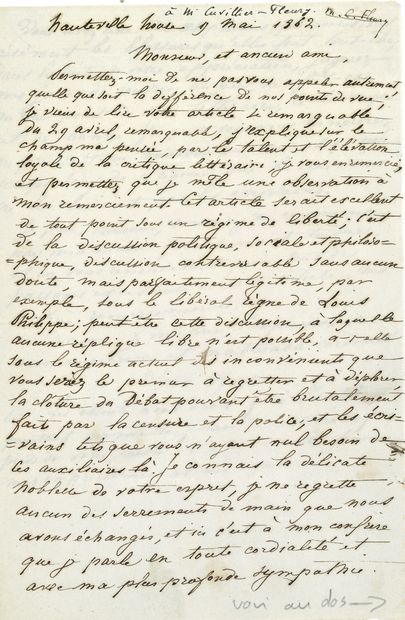 à Mr Cuvillier-Fleury. M. C. Fleury
hauteville house 9 mai 1862.
Monsieur, et ancien ami,
Permettez-moi de ne pas vous appeler autrement,
quelle que soit la différence de nos points de vue,
je viens de lire votre article si remarquable
du 29 avril, remarquable, j'explique sur le
champ ma pensée, par le talent et l'élévation
loyale de la critique littéraire. je vous en remercie,
et permettez que je mêle une observation à
mon remerciement. cet article serait excellent
de tout point sous un régime de liberté; c'est
de la discussion politique, sociale et philoso-
-phique, discussion controversable sans aucun
doute, mais parfaitement légitime, par
exemple, sous le libéral règne de Louis
Philippe; peut être cette discussion, à laquelle
aucune réplique libre n'est possible, a-t-elle
sous le régime actuel des inconvénients que
vous serez le premier à regretter et à déplorer,
la clôture du Débat pouvant être brutalement
fait par la censure et la police, et les écri-
-vains tels que vous n'ayant nul besoin de
ces auxiliaires là. Je connais la délicate
noblesse de votre esprit, je ne regrette
aucun des serrements de main que nous
avons échangés, et ici c'est à mon confrère
que je parle en toute cordialité et
avec ma plus profonde sympathie.
voir au dos